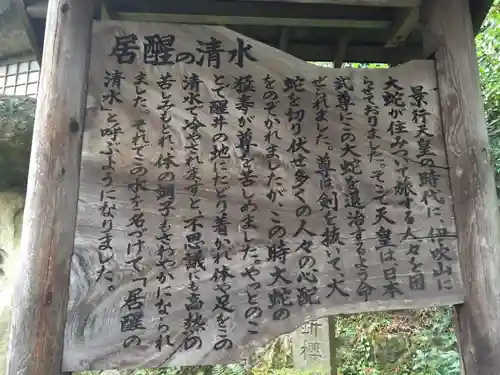 居醒の清水
景行天皇の時代に、伊吹山に
大蛇が住みついて旅する人々を困
らせておりました。そこで天皇は日本
武尊にこの大蛇を退治するよう命
ぜられました。尊は剣を抜いて、大
蛇を切り伏せ多くの人々の心配
をのぞかれましたが、この時大蛇の
猛毒が尊を苦しめました。やっとのこ
とで醒井の地にたどり着かれ体や足をこの
清水で冷やされますと、不思議にも高熱の
苦しみもとれ、体の調子もさわやかになられ
ました。それでこの水を名づけて「居醒の
清水」と呼ぶようになりました。